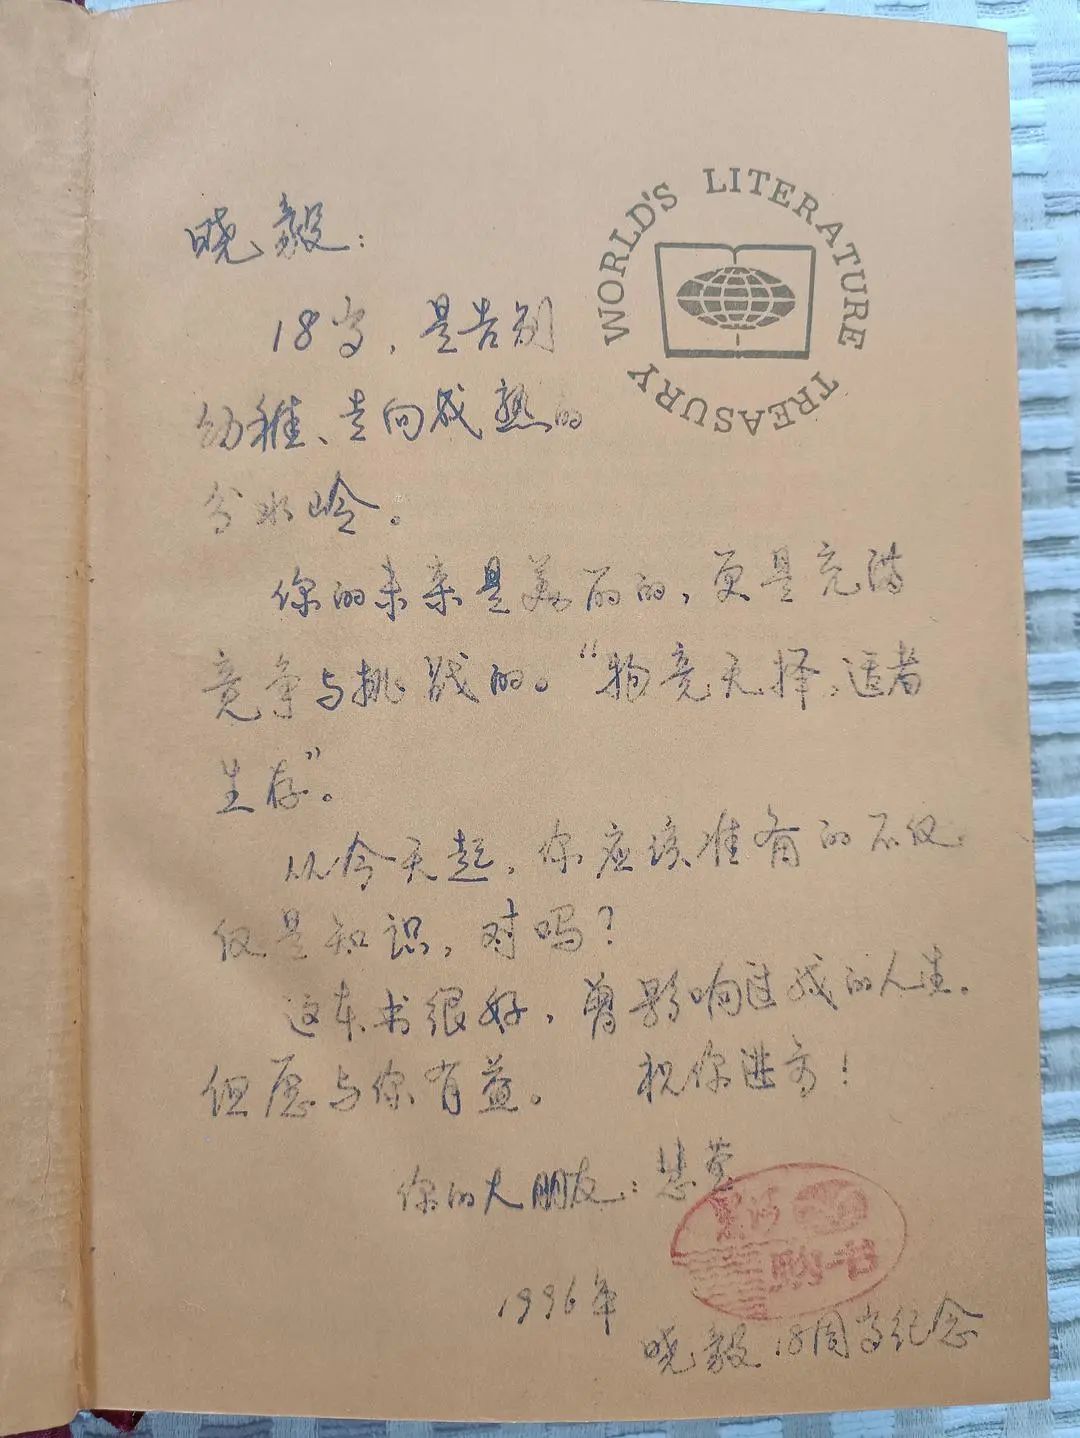 WORLD'S LITERATURE TREASURY
晓毅：
18岁，是告别
幼稚、走向成熟的
分水岭。
你的未来是美丽的，更是充满
竞争与挑战的。“物竞天择，适者
生存”。
从今天起，你应该准备的不仅
仅是知识，对吗？
这本书很好，曾影响过我的人生。
但愿与你有益。 祝你进步！
你的大朋友：慧莹
购书
1996年
晓毅18周岁纪念